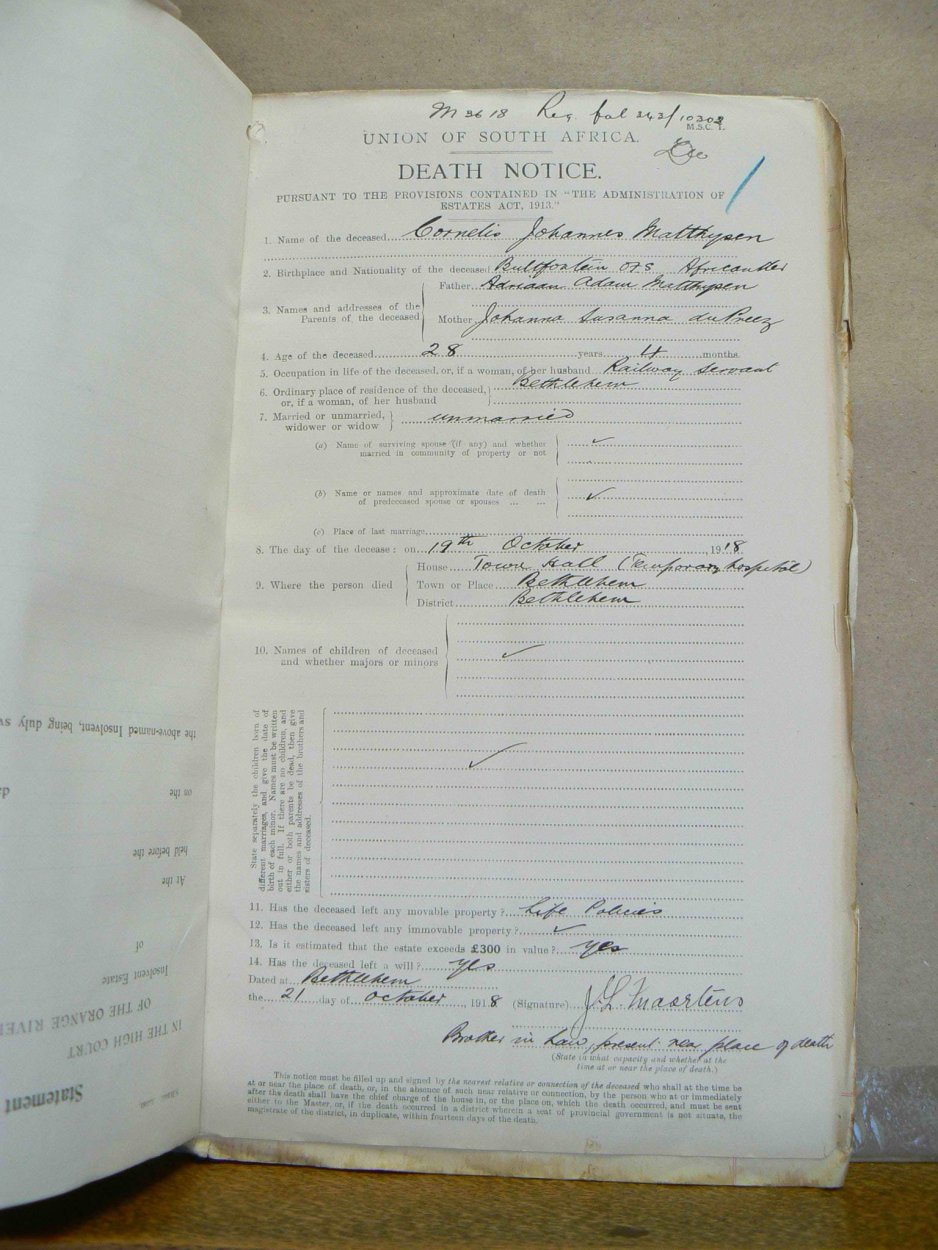 M 3618 Reg. fol 343/10303
M.S.C. 1.
UNION OF SOUTH AFRICA.
DEATH NOTICE.
PURSUANT TO THE PROVISIONS CONTAINED IN "THE ADMINISTRATION OF
ESTATES ACT, 1913."
1. Name of the deceased Cornelis Johannes Matthysen
2. Birthplace and Nationality of the deceased Bultfontein OFS Africander
3. Names and addresses of the
Parents of the deceased
Father Adriaan Adam Matthysen
Mother Johanna Susanna du Preez
4. Age of the deceased 28 years 4 months.
5. Occupation in life of the deceased, or, if a woman, of her husband Railway Servant
6. Ordinary place of residence of the deceased,
or, if a woman, of her husband
Bethlehem
7. Married or unmarried,
widower or widow
unmarried
(a) Name of surviving spouse (if any) and whether
married in community of property or not
(b) Name or names and approximate date of death
of predeceased spouse or spouses ... ...
(c) Place of last marriage
8. The day of the decease: on 19th October, 1918
9. Where the person died
House Town Hall (Temporary hospital)
Town or Place Bethlehem
District Bethlehem
10. Names of children of deceased
and whether majors or minors
State separately the children born of
different marriages, and give the date of
birth of each minor. Names must be written
out in full. If there are no children, and
either or both parents be dead, then give
the names and addresses of the brothers and
sisters of deceased.
11. Has the deceased left any movable property? Life Policies
12. Has the deceased left any immovable property?
13. Is it estimated that the estate exceeds £300 in value? yes
14. Has the deceased left a will? yes
Dated at Bethlehem
the 21 day of October, 1918 (Signature) J. L. Maartens
Brother in Law, present near place of death
(State in what capacity and whether at the
time at or near the place of death.)
This notice must be filled up and signed by the nearest relative or connection of the deceased who shall at the time be
at or near the place of death, or, in the absence of such near relative or connection, by the person who at or immediately
after the death shall have the chief charge of the house in, or the place on, which the death occurred, and must be sent
either to the Master, or, if the death occurred in a district wherein a seat of provincial government is not situate, the
magistrate of the district, in duplicate, within fourteen days of the death.
Statement
IN THE HIGH COURT
OF THE ORANGE RIVER
Insolvent Estate
of
At the
held before the
on the
the above-named Insolvent, being duly